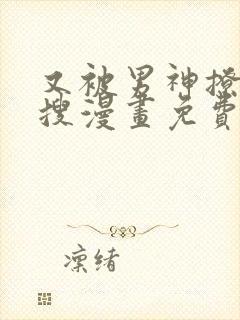 又被男神撩
搜漫畫免費
凜緒